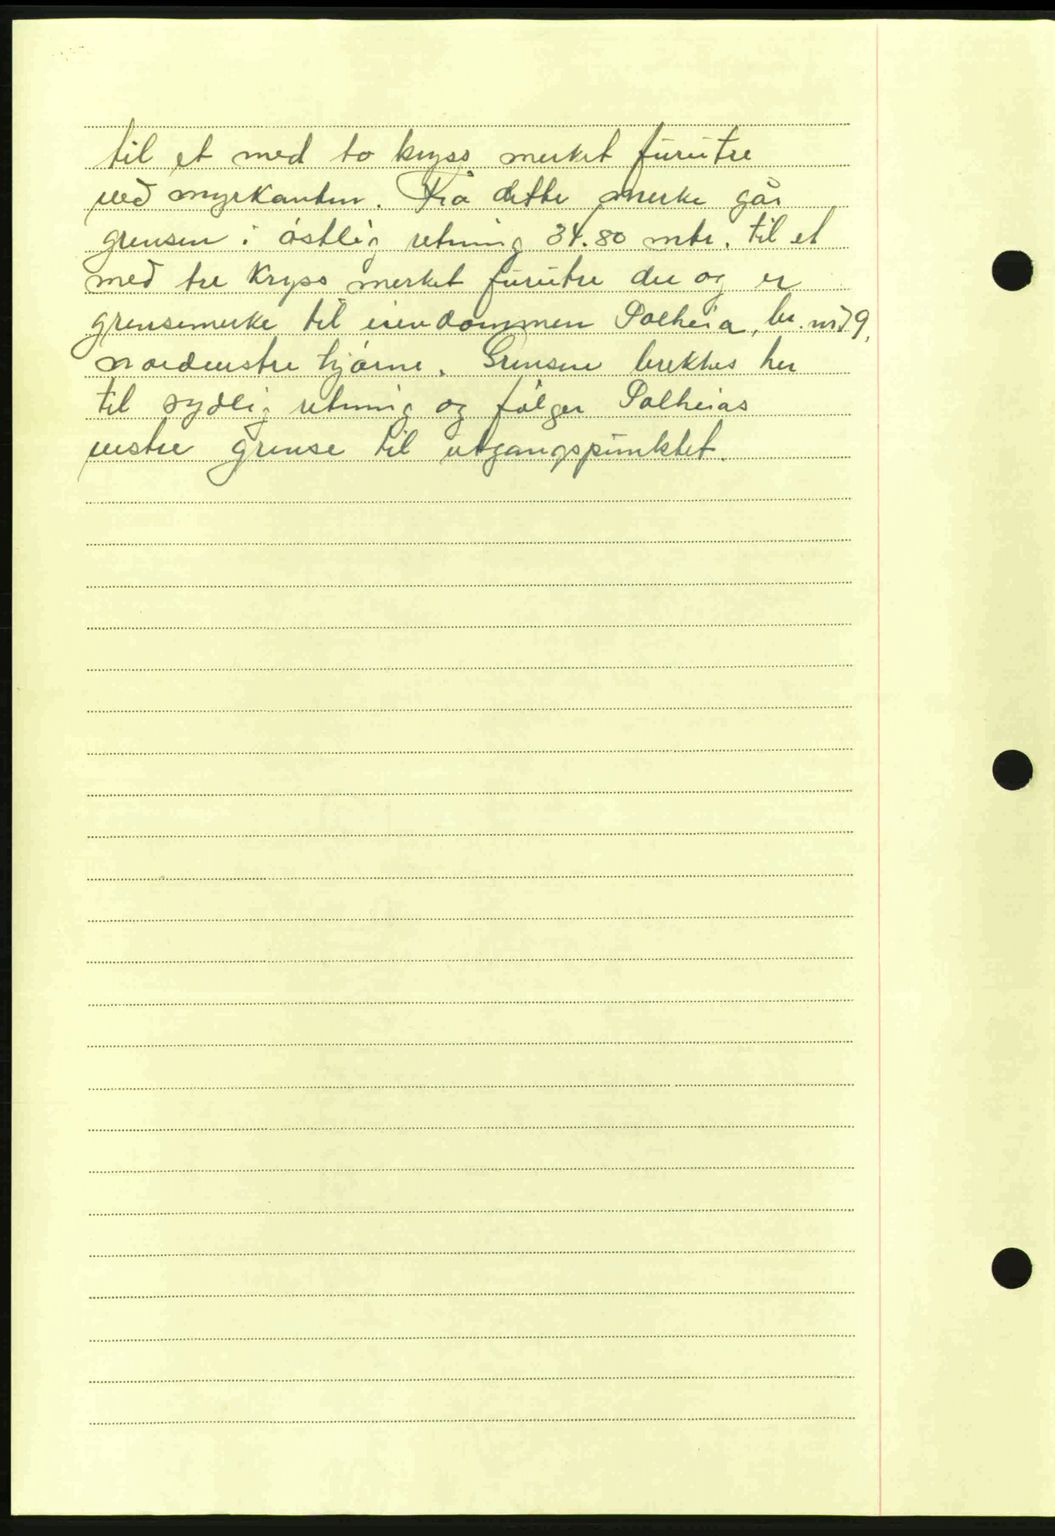 til et med to kryss merket furutre
ved myrkanten. Fra dette merke går
grensen i östlig retning 34.80 mtr. til et
med tre kryss merket furutre der og er
grensemerke til eiendommen Solheia, br. nr. 79,
nordvestre hjörne. Grensene brektes her
til sydlig retning og fölger Solheias
vestre grense til utgangspunktet.